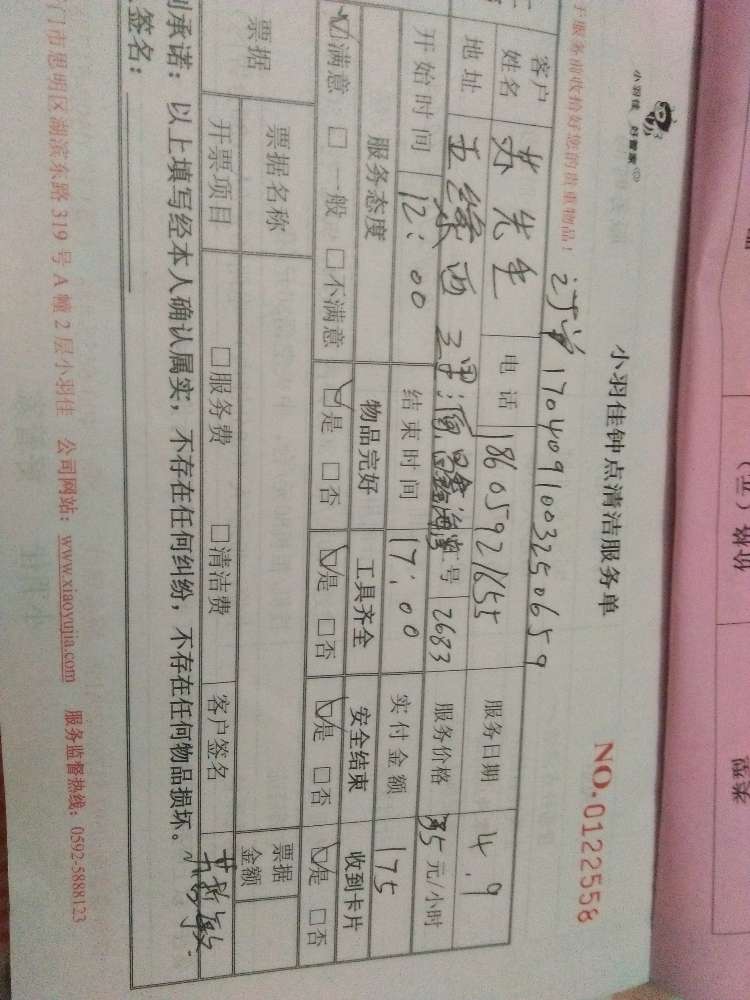 小羽佳 好管家
小羽佳钟点清洁服务单
NO.0122558
于服务前收拾好您的贵重物品!
订单1704091003250659
客户姓名 苏先生 电话 18605921655 服务日期 4.9
地址 五缘西 号 2683 服务价格 35元/小时
开始时间 12:00 结束时间 17:00 实付金额 175
服务态度 物品完好 工具齐全 安全结束 收到卡片
☑满意 □一般 □不满意 ☑是 □否 ☑是 □否 ☑是 □否 ☑是 □否
票据 票据名称 票据金额
开票项目 □服务费 □清洁费 客户签名
承诺:以上填写经本人确认属实,不存在任何纠纷,不存在任何物品损坏。
签名:
门市思明区湖滨东路319号A幢2层小羽佳 公司网站:www.xiaoyujia.com 服务监督热线:0592-5888123